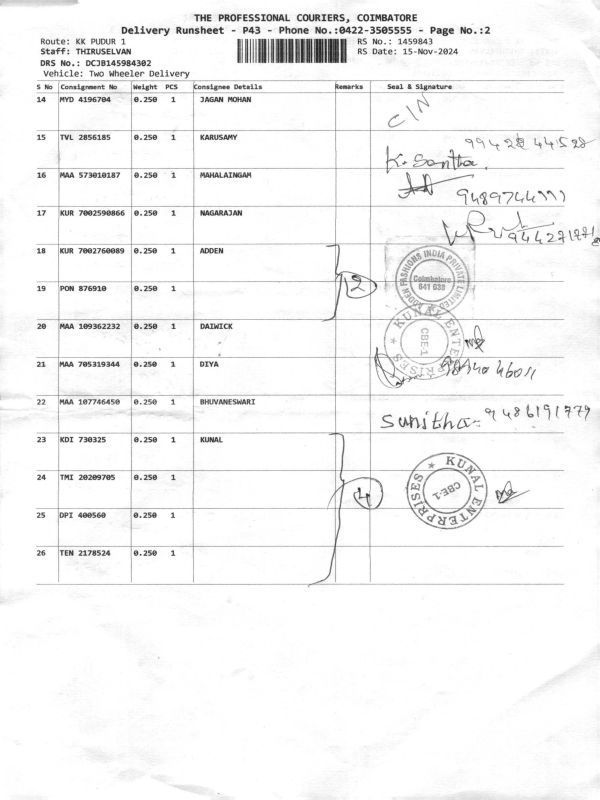 THE PROFESSIONAL COURIERS, COIMBATORE
Delivery Runsheet - P43 - Phone No.:0422-3505555 - Page No.:2
Route: KK PUDUR 1 RS No.: 1459843
Staff: THIRUSELVAN RS Date: 15-Nov-2024
DRS No.: DCJB145984302
Vehicle: Two Wheeler Delivery
S No Consignment No Weight PCS Consignee Details Remarks Seal & Signature
14 MYD 4196704 0.250 1 JAGAN MOHAN
15 TVL 2856185 0.250 1 KARUSAMY
K. Santha.
16 MAA 573010187 0.250 1 MAHALAINGAM
17 KUR 7002590866 0.250 1 NAGARAJAN
18 KUR 7002760089 0.250 1 ADDEN
ADDEN FASHIONS INDIA PRIVATE LIMITED
Coimbatore
641 038
2
19 PON 876910 0.250 1
20 MAA 109362232 0.250 1 DAIWICK
KUNAL ENTERPRISES
CBE-1
21 MAA 705319344 0.250 1 DIYA
22 MAA 107746450 0.250 1 BHUVANESWARI
Sunitha- 9486191779
23 KDI 730325 0.250 1 KUNAL
24 TMI 20209705 0.250 1
4
KUNAL ENTERPRISES
CBE-1
25 DPI 400560 0.250 1
26 TEN 2178524 0.250 1